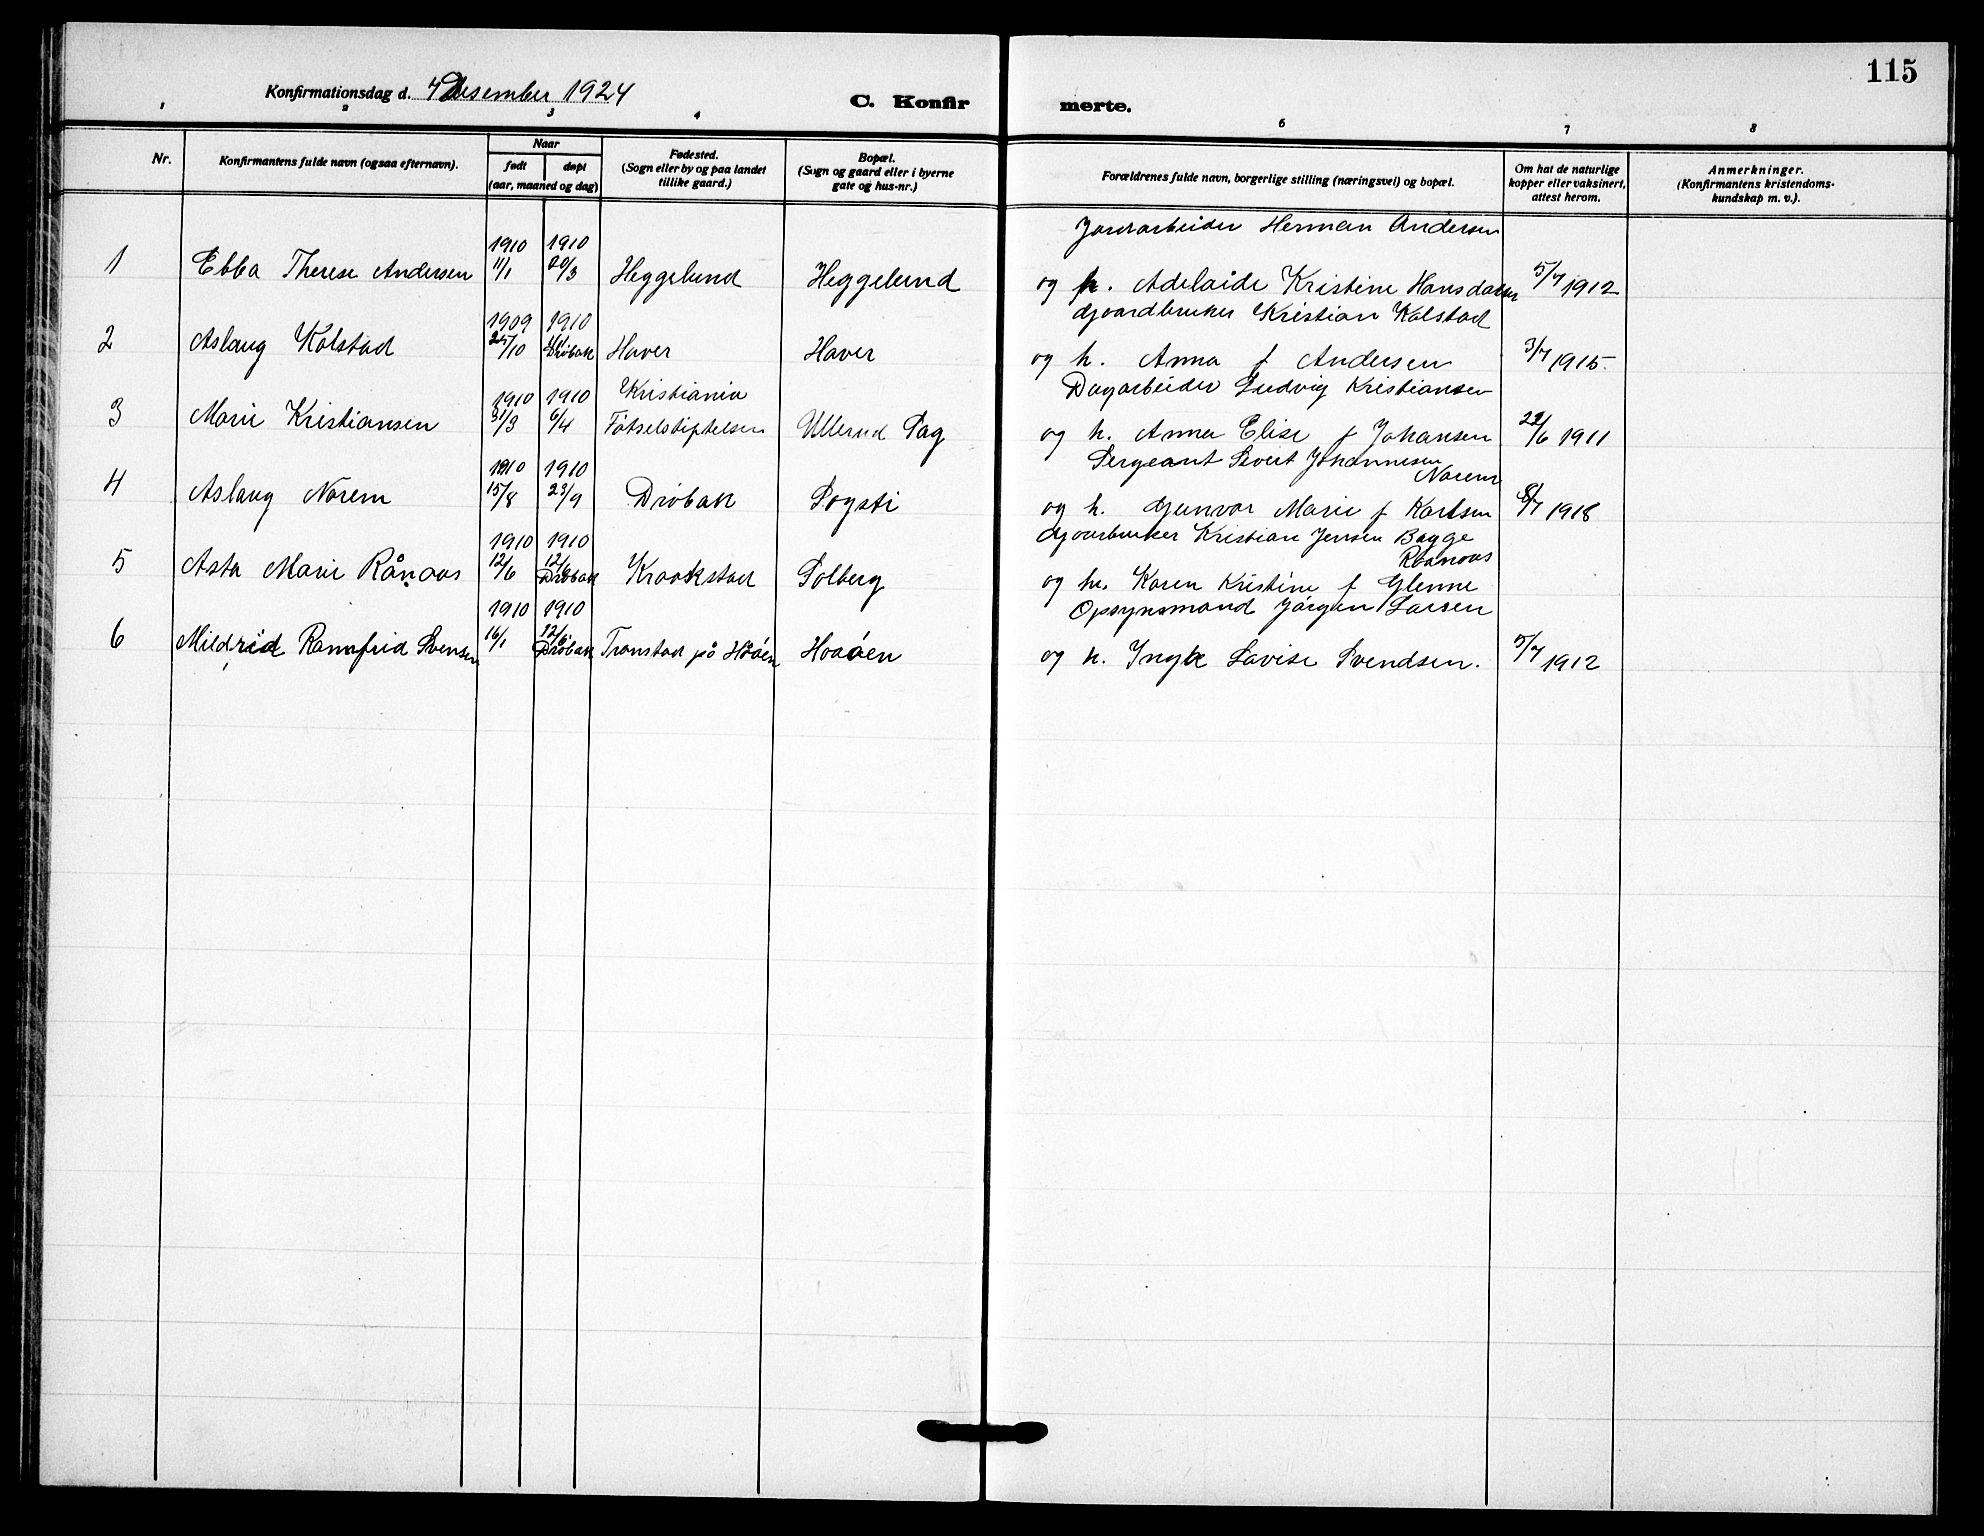 115
Konfirmationsdag d. 7 Desember 1924
C. Konfirmerte.
1 2 3 4 6 7 8
Nr.
Konfirmantens fulde navn (ogsaa efternavn).
Naar
født døpt
(aar, maaned og dag)
Fødested.
(Sogn eller by og paa landet
tillike gaard.)
Bopæl.
(Sogn og gaard eller i byerne
gate og hus-nr.)
Forældrenes fulde navn, borgerlige stilling (næringsvei) og bopæl.
Om hat de naturlige
kopper eller vaksinert,
attest herom.
Anmerkninger.
(Konfirmantens kristendoms-
kundskap m. v.).
Jordarbeider Herman Andersen
1910 1910
1 Ebba Therese Andersen 11/1 20/3 Heggelund Heggelund og h. Adelaide Kristine Hansdatter 5/7 1912
Gaardbruker Kristian Kolstad
1909 1910
2 Aslaug Kolstad 25/10 Drøbak Haver Haver og h. Anna f Andersen 3/7 1915.
Dagarbeider Ludvig Kristiansen
1910 1910 Kristiania
3 Marie Kristiansen 31/3 6/4 Fötselstiftelsen Ullerud Sag og h. Anna Elise f Johansen 22/6 1911
Sergeant Sivert Johannesen
Norem
1910 1910
4 Aslaug Norem 15/8 23/9 Dröbak Sogsti og h. Gunvor Marie f Karlsen 8/7 1918
Gaarbruker Kristian Jensen Bagge
Raanaas
1910 1910
5 Asta Marie Rånaas 12/6 12/6 Dröbak Kraakstad Solberg og h. Karen Kristine f Glenne
Opsynsmand Jörgen Larsen
1910 1910
6 Mildrid Ramfrid Svensen 16/1 12/6 Dröbak Tronstad på Håöen Haaöen og h. Lovise Svendsen. 5/7 1912